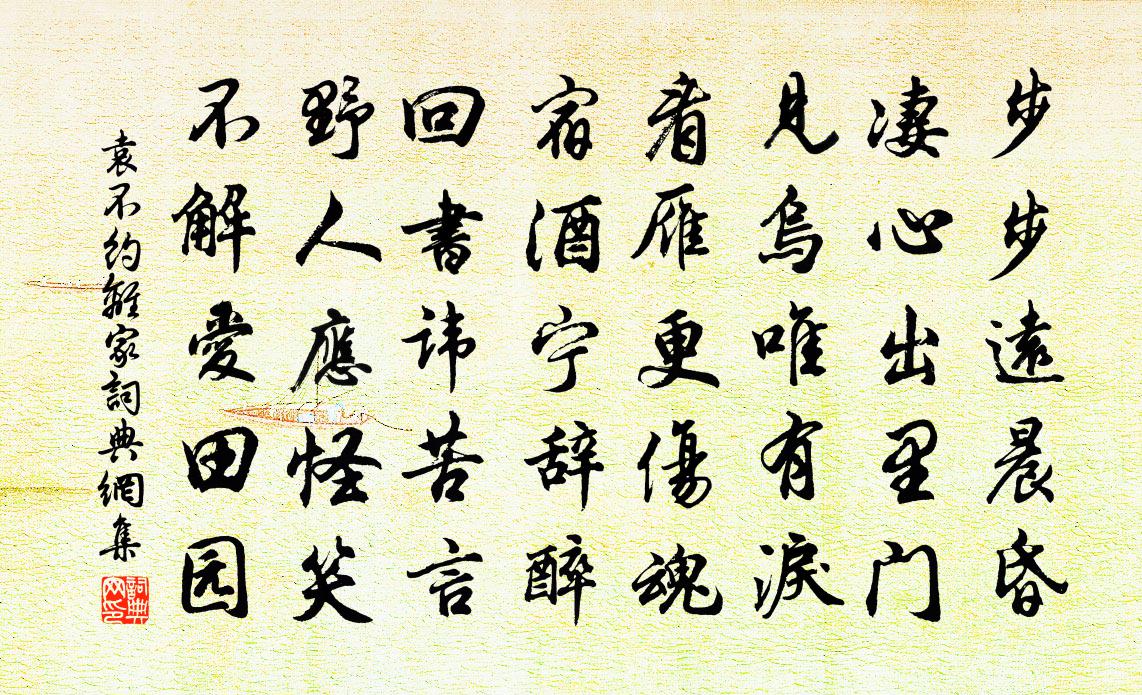 步步遠晨昏
凄心出里門
見烏唯有淚
看雁更傷魂
宿酒宁辞醉
回書讳苦言
野人應怪笑
不解愛田园
袁不約離家詞典網集
詞典网印